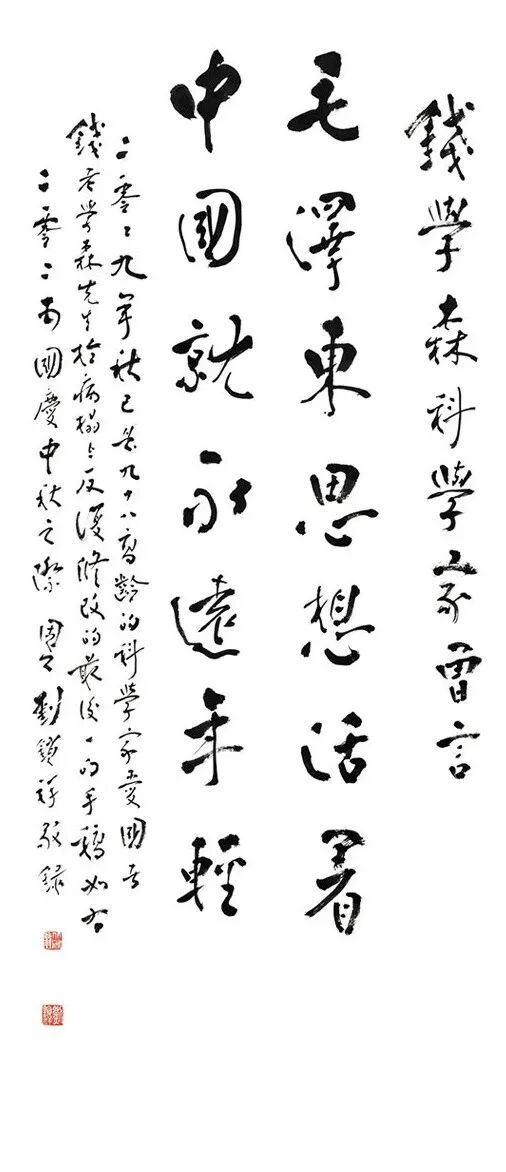 錢學森科學家曾言
毛澤東思想活着
中國就永遠年輕
二零零九年秋已是九十八高齡的科學家愛國者
錢老學森先生於病榻上反復修改的最後一的手稿如右
二零二 國慶中秋之際 劉鎖祥敬録